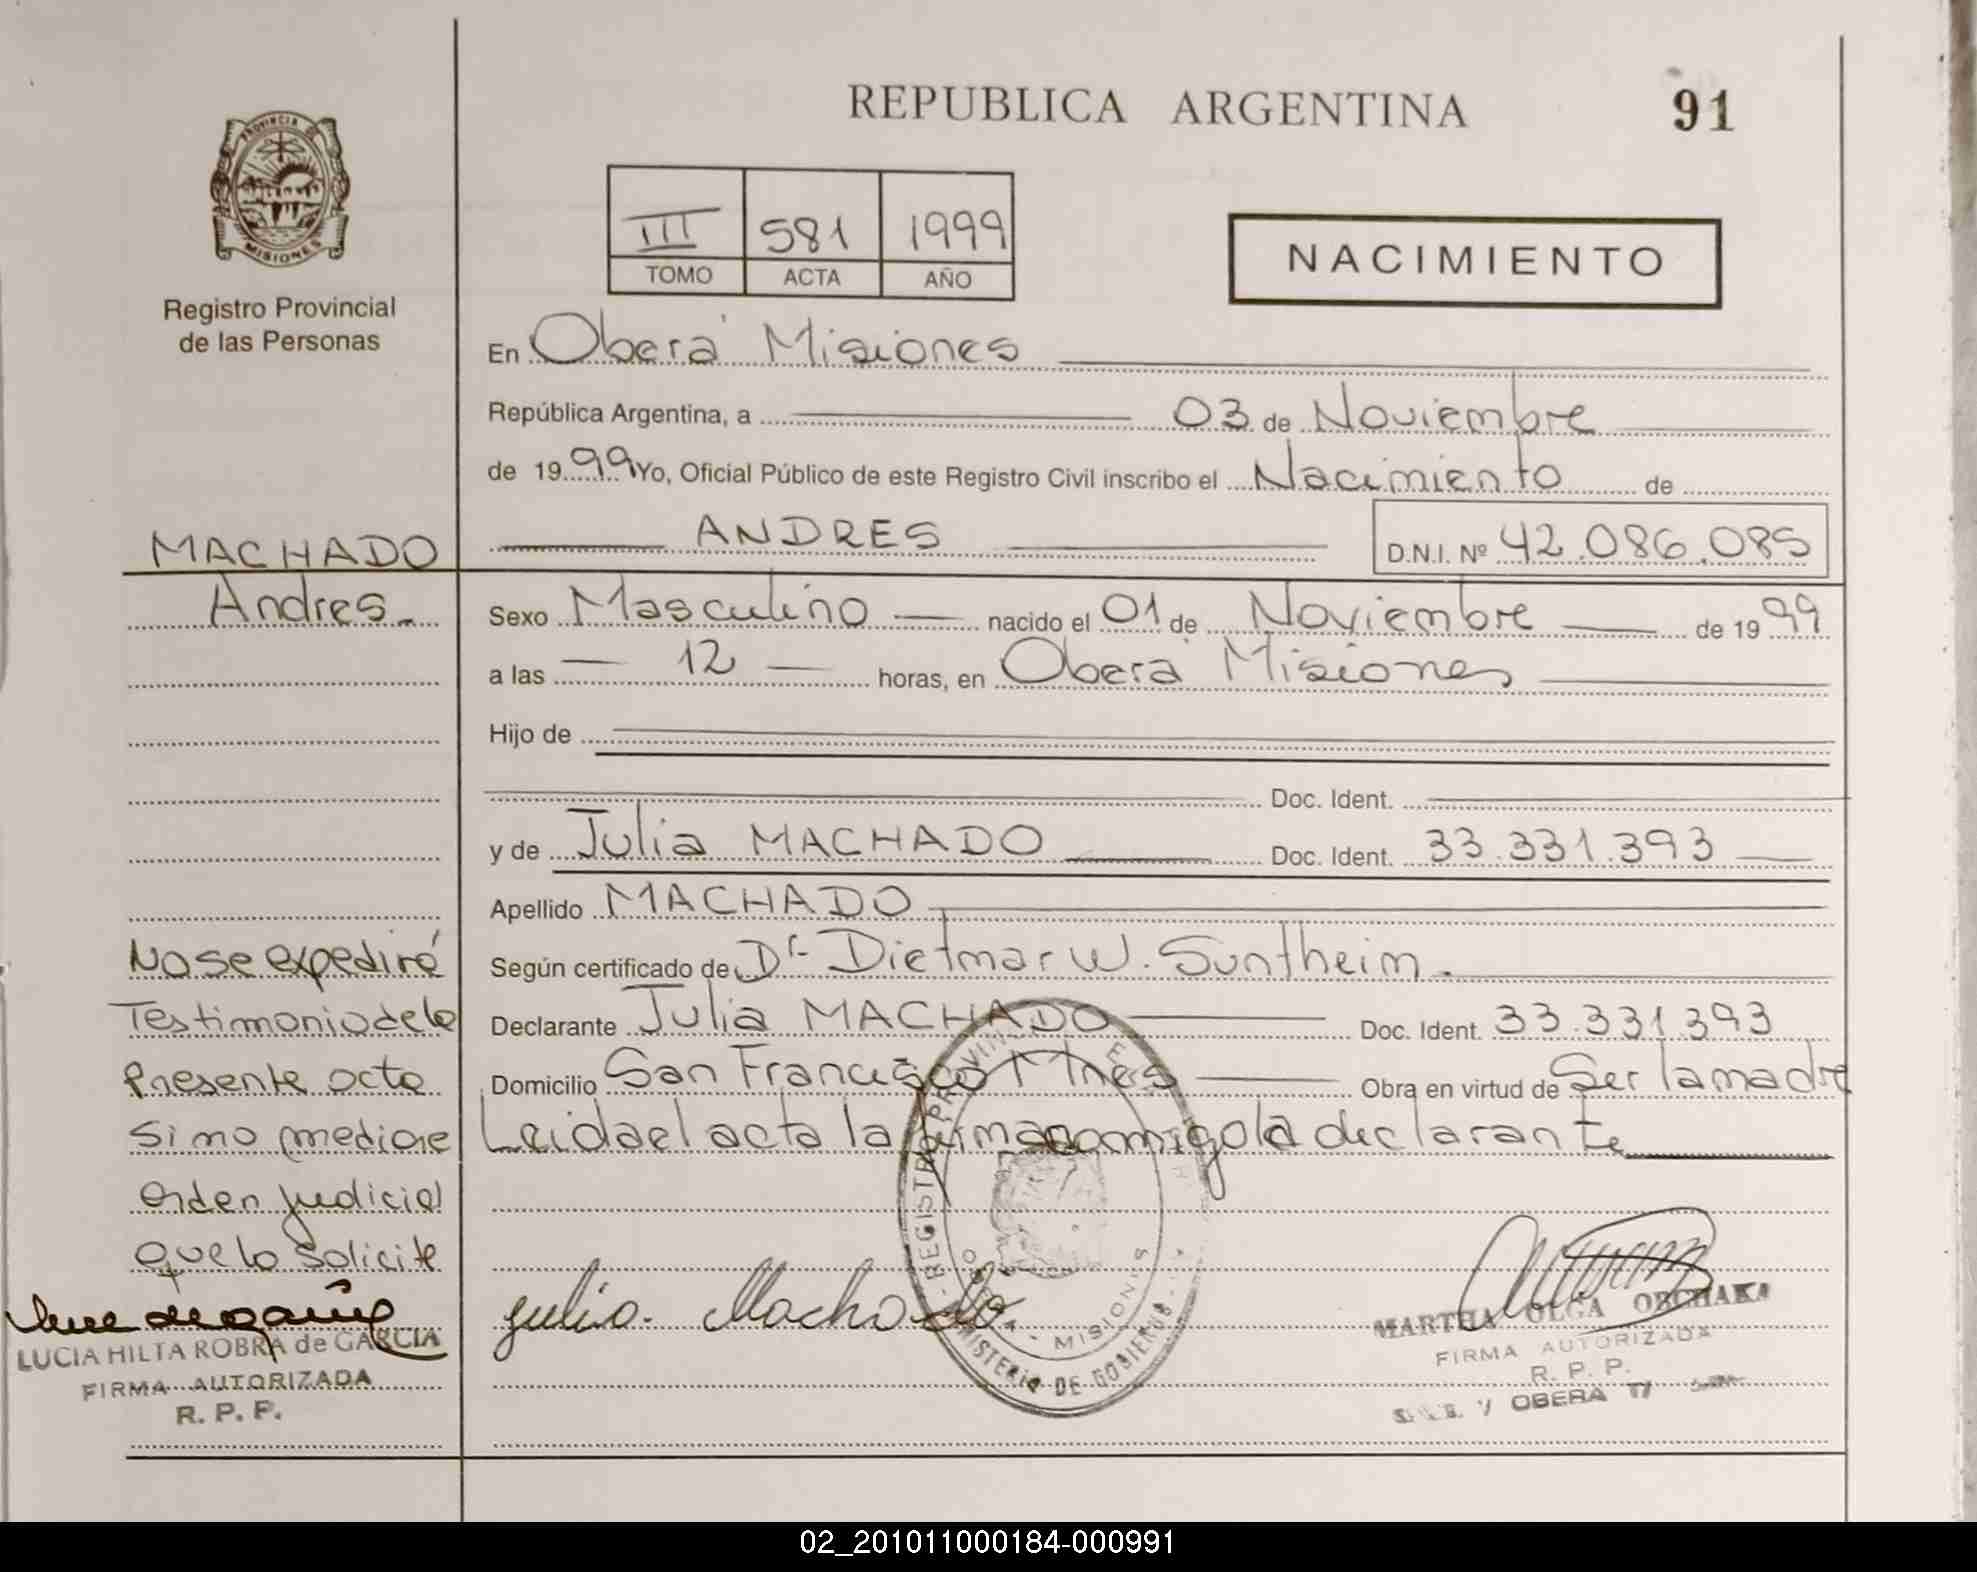 REPUBLICA ARGENTINA 91
PROVINCIA DE
MISIONES
Registro Provincial
de las Personas
III 581 1999
TOMO ACTA AÑO
NACIMIENTO
En Oberá Misiones
República Argentina, a 03 de Noviembre
de 1999 Yo, Oficial Público de este Registro Civil inscribo el Nacimiento de
ANDRES D.N.I. Nº 42.086.085
MACHADO
Andres.-
Sexo Masculino nacido el 01 de Noviembre de 1999
a las 12 horas, en Oberá Misiones
Hijo de
Doc. Ident.
y de Julia MACHADO Doc. Ident. 33.331.393
Apellido MACHADO
Según certificado de Dr. Dietmar W. Suntheim.
Declarante Julia MACHADO Doc. Ident. 33.331.393
Domicilio San Francisco Mnes Obra en virtud de Ser la madre
Leida el acta la firma conmigo la declarante
No se expedirá
Testimonio de la
Presente acta
Si no mediare
orden judicial
que lo solicite
LUCIA HILTA ROBRA de GARCIA
FIRMA AUTORIZADA
R. P. P.
Julia. Machado
MISIONES
MINISTERIO DE GOBIERNO
MARTHA OLGA
FIRMA AUTORIZADA
R. P. P.
OBERA
02_201011000184-000991